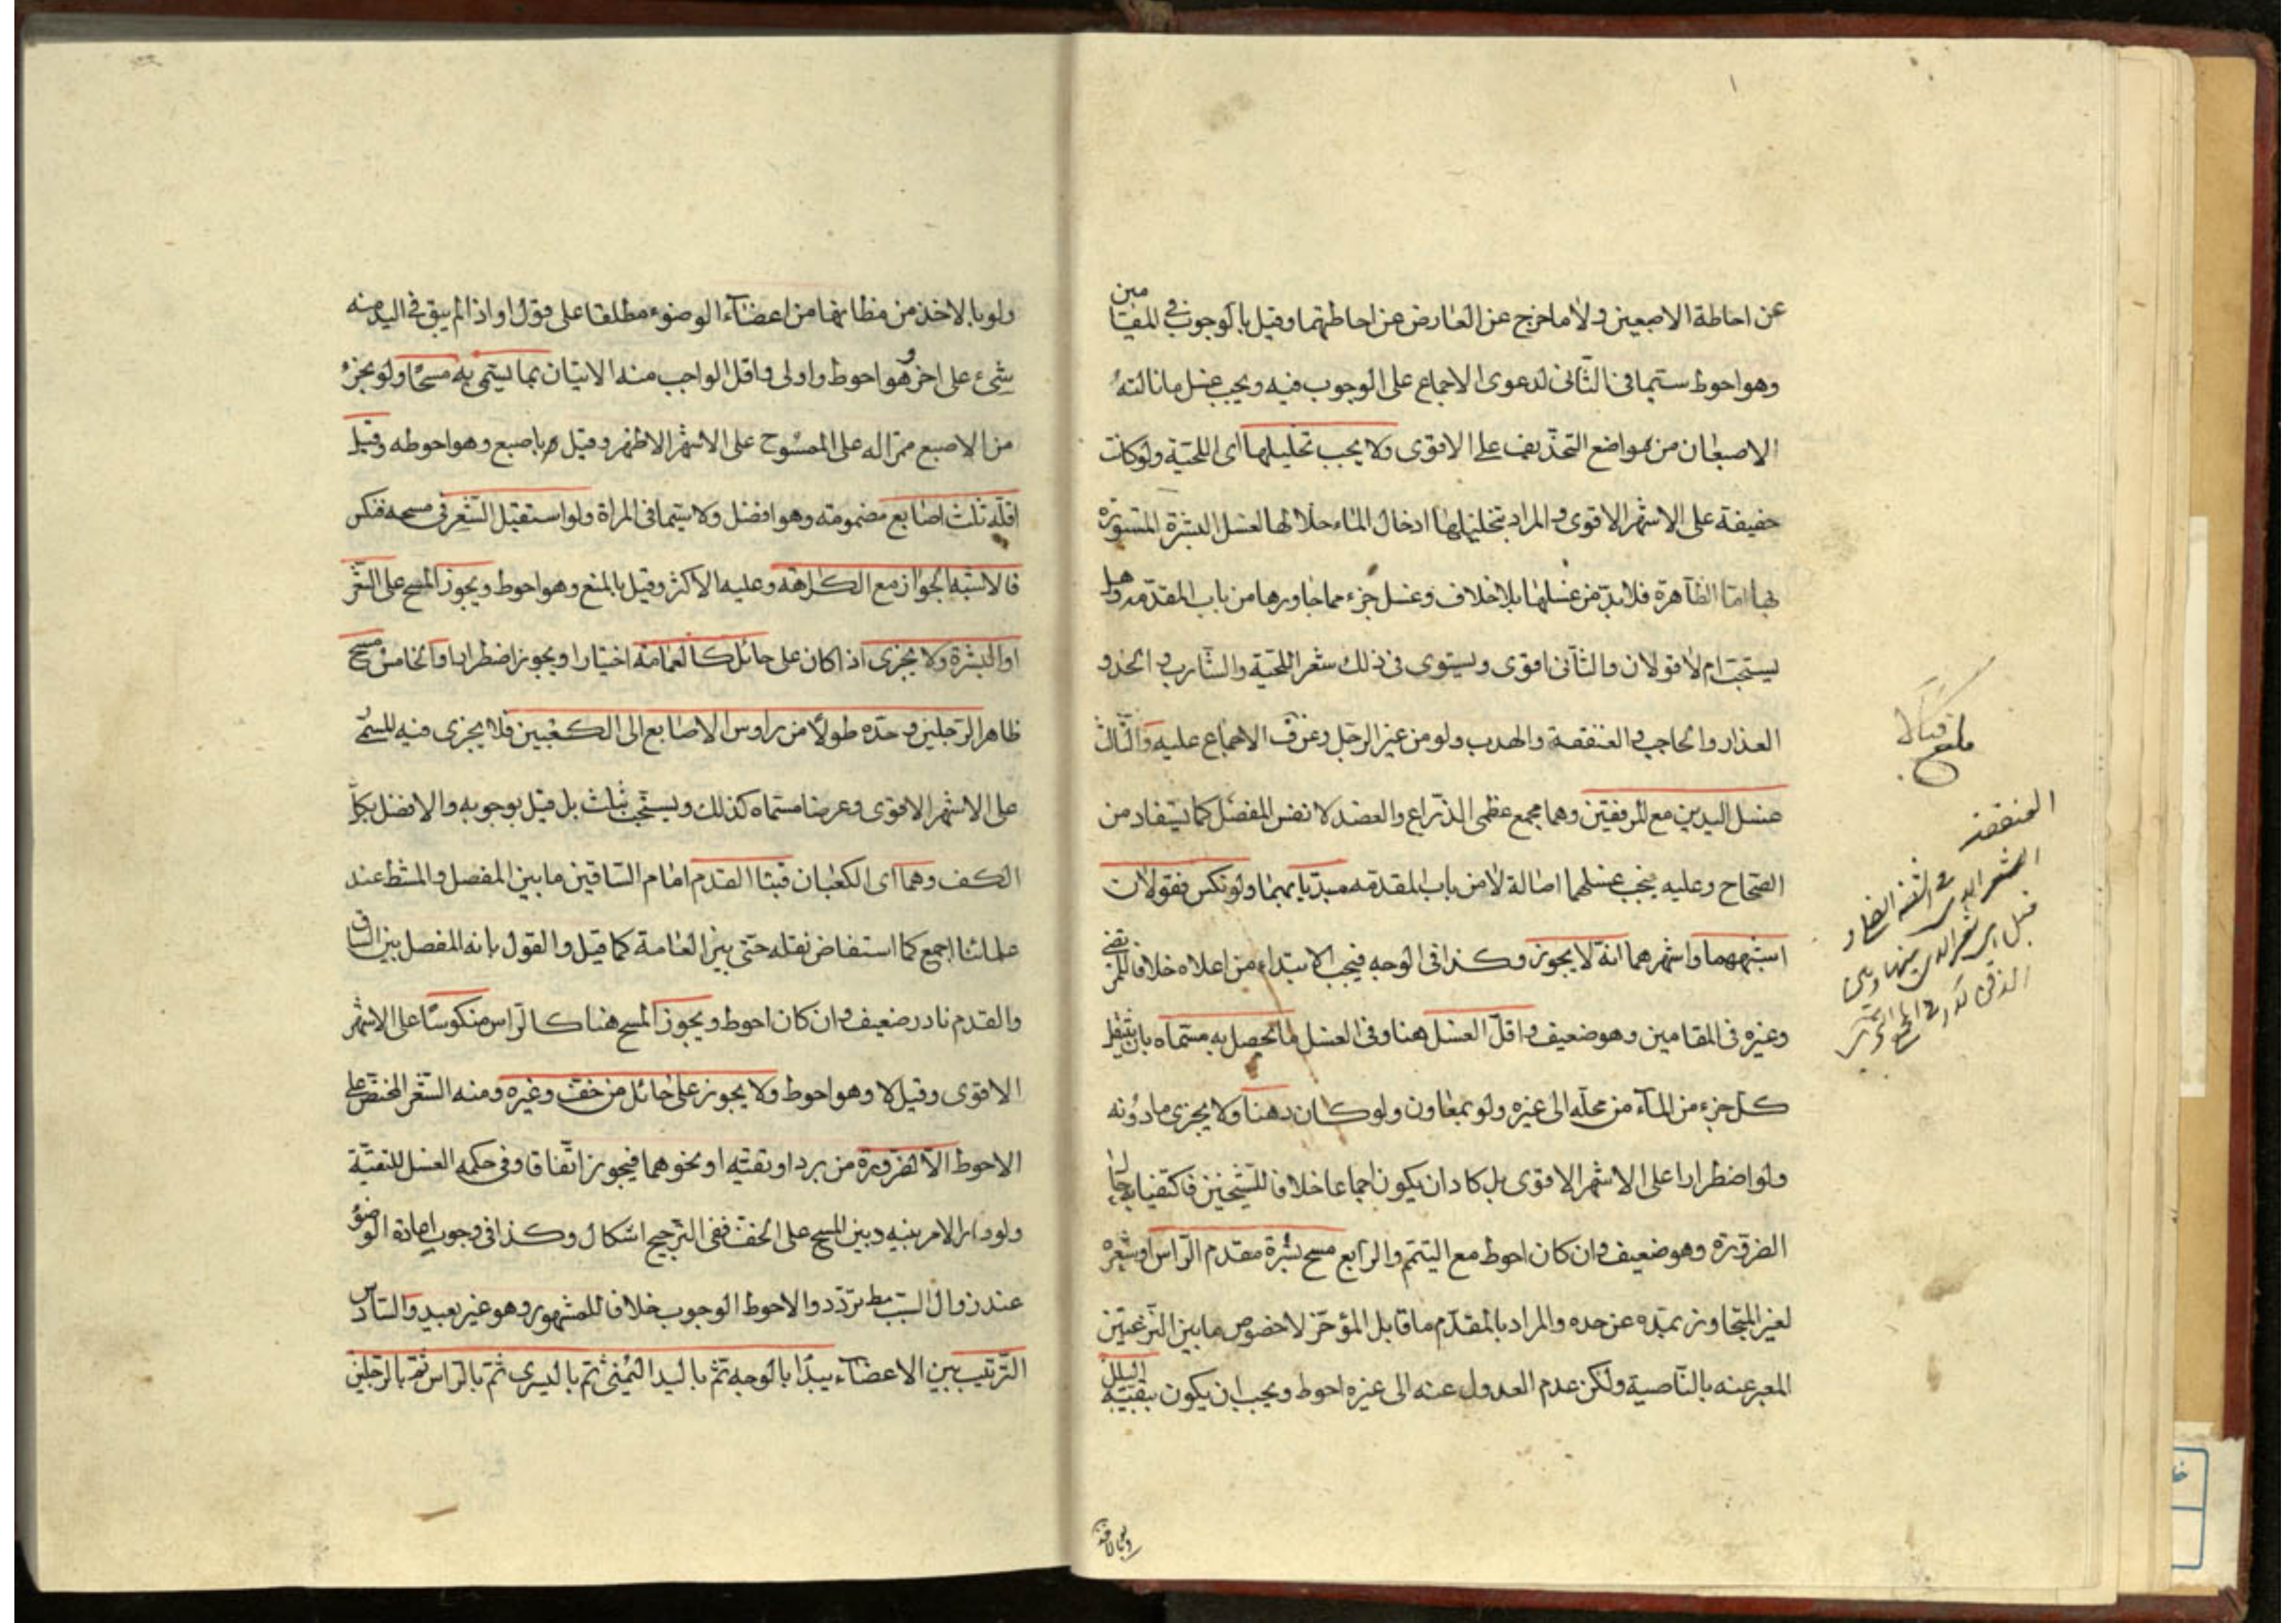 عن احاطة الاصبعين ولا ما خرج عن العارض عن احاطتهما وقيل بالوجوب في المقامين
وهو احوط سيّما في الثّاني لدعوى الاجماع على الوجوب فيه ويجب غسل ما نالته
الاصبعان من مواضع التحذيف على الاقوى ولا يجب تخليلها اى اللحية ولو كانت
خفيفة على الاشهر الاقوى والمراد بتخليلها ادخال الماء خلالها لغسل البشرة المستورة
بها امّا الظّاهرة فلا بدّ من غسلها بلا خلاف وغسل جزء مما جاورها من باب المقدّمة وهل
يستحبّ ام لا قولان والثّاني اقوى ويستوى في ذلك شعر اللحية والشّارب والخد و
العذار والحاجب والعنفقة والهدب ولو من غير الرّجل وعن ف الاجماع عليه والثّالث
غسل اليدين مع المرفقين وهما مجمع عظمى الذّراع والعضد لا نفس المفصل كما يستفاد من
الصّحاح وعليه يجب غسلهما اصالة لا من باب المقدمه مبديا بهما ولو نكس فقولان
اشبههما واشهرهما انه لا يجوز وكذا في الوجه فيجب الابتداء من اعلاه خلافا للمرتضى
وغيره في المقامين وهو ضعيف واقلّ الغسل هنا وفي الغسل ما يحصل به مسمّاه بان ينتقل
كل جزء من الماء من محلّه الى غيره ولو بمعاون ولو كان دهنا ولا يجزى ما دونه
ولو اضطرارا على الاشهر الاقوى بل كاد ان يكون اجماعا خلافا للشّيخين فاكتفيا به حال
الضّرورة وهو ضعيف وان كان احوط مع التيمّم والرّابع مسح بشرة مقدم الرّاس او شعره
لغير المتجاوز بمدّه عن حده والمراد بالمقدّم ما قابل المؤخّر لا خصوص ما بين النّزعتين
المعبر عنه بالنّاصية ولكن عدم العدول عنه الى غيره احوط ويجب ان يكون ببقيّة البلل
العنفقة
الشعر الذى في الشفة السفلى و
قيل هى الشعر الذى بينها وبين
الذقن
ولو بالاخذ من مظانها من اعضاء الوضوء مطلقا على قول او اذا لم يبق في اليد منه
شىء على اخر وهو احوط واولى واقل الواجب منه الاتيان بما يسمّى به مسحًا ولو بجزء
من الاصبع ممرّا له على الممسوح على الاشهر الاظهر وقيل باصبع وهو احوطه وقيل
اقلّه ثلث اصابع مضمومته وهو افضل ولا سيّما في المراة ولو استقبل الشّعر في مسحه فنكس
فالاشبه الجواز مع الكراهة وعليه الاكثر وقيل بالمنع وهو احوط ويجوز المسح على الشّعر
او البشرة ولا يجزى اذا كان على حائل كالعمامة اختيارا ويجوز اضطرارا والخامس مسح
ظاهر الرّجلين وحدّه طولًا من راوس الاصابع الى الكعبين فلا يجزى فيه المسمّى
على الاشهر الاقوى وعرضا مسمّاه كذلك ويستحب بثلث بل قيل بوجوبه والافضل بكلّ
الكف وهما اى الكعبان قبتا القدم امام السّاقين ما بين المفصل والمشط عند
علمائنا اجمع كما استفاض نقله حتى بين العامة كما قيل والقول بانه المفصل بين السّاق
والقدم نادر ضعيف وان كان احوط ويجوز المسح هنا كالرّاس منكوسًا على الاشهر
الاقوى وقيل لا وهو احوط ولا يجوز على حائل من خفّ وغيره ومنه الشّعر المختصّ على
الاحوط الّا لضرورة من برد او تقيّة او نحوهما فيجوز اتّفاقا وفي حكمه الغسل للتقيّة
ولو دار الامر بينه وبين المسح على الخفّ ففي التّرجيح اشكال وكذا في وجوب اعادة الوضوء
عند زوال السّبب تردّد والاحوط الوجوب خلافا للمشهور وهو غير بعيد والسّادس
التّرتيب بين الاعضاء يبدأ بالوجه ثمّ باليد اليمنى ثم باليسرى ثمّ بالرّاس ثمّ بالرّجلين